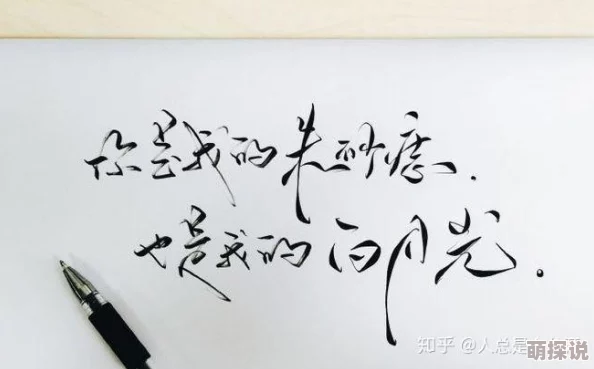 你是我的朱砂痣.
也是我的白月光.
知乎 @人总是
萌探说